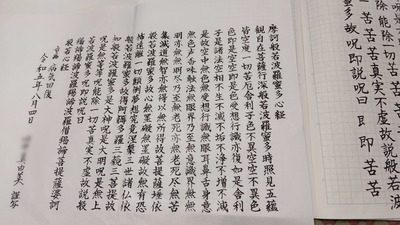 除能除一切苦苦苦苦真実不虚故説般若波
多故呪即説呪曰 曰 即即苦苦
摩訶般若波羅蜜多心経
観自在菩薩行深般若波羅蜜多時照見五蘊
皆空度一切苦厄舎利子色不異空空不異色
色即是空空即是色受想行識亦復如是舎利
子是諸法空相不生不滅不垢不浄不増不減
是故空中無色無受想行識無眼耳鼻舌身意
無色声香味触法無眼界乃至無意識界無無
明亦無無明尽乃至無老死亦無老死尽無苦
集滅道無智亦無得以無所得故菩提薩埵依
般若波羅蜜多故心無罣礙無罣礙故無有恐
怖遠離一切顛倒夢想究竟涅槃三世諸仏依
般若波羅蜜多故得阿耨多羅三藐三菩提故
知般若波羅蜜多是大神呪是大明呪是無上
呪是無等等呪能除一切苦真実不虚故説般
若波羅蜜多呪即説呪曰
羯諦羯諦波羅羯諦波羅僧羯諦菩提薩婆訶
般若心経
為 病気回復
令和五年八月四日
真由美 謹写